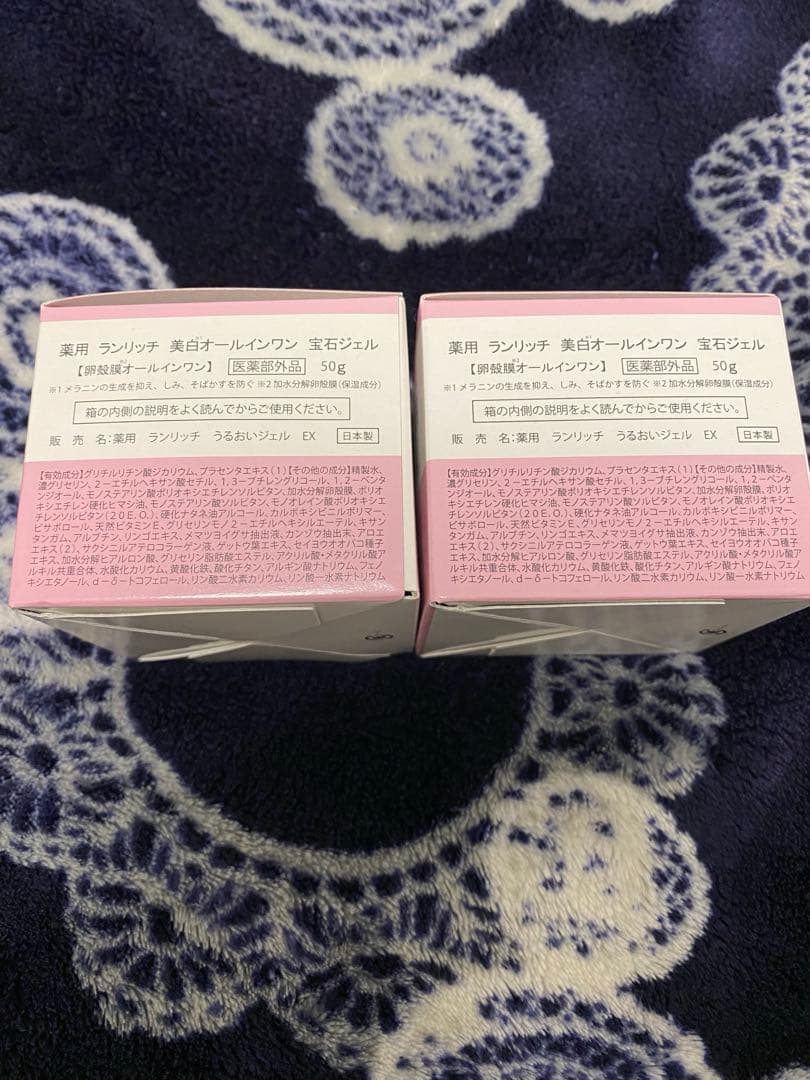 薬用 ランリッチ 美白※1オールインワン 宝石ジェル
【卵殻膜※2オールインワン】 医薬部外品 50g
※1 メラニンの生成を抑え、しみ、そばかすを防ぐ ※2 加水分解卵殻膜(保湿成分)
箱の内側の説明をよく読んでからご使用ください。
販 売 名:薬用 ランリッチ うるおいジェル EX 日本製
【有効成分】グリチルリチン酸ジカリウム、プラセンタエキス(1)【その他の成分】精製水、
濃グリセリン、2-エチルヘキサン酸セチル、1,3-ブチレングリコール、1,2-ペンタ
ンジオール、モノステアリン酸ポリオキシエチレンソルビタン、加水分解卵殻膜、ポリオ
キシエチレン硬化ヒマシ油、モノステアリン酸ソルビタン、モノオレイン酸ポリオキシエ
チレンソルビタン(20E.O.)、硬化ナタネ油アルコール、カルボキシビニルポリマー、
ビサボロール、天然ビタミンE、グリセリンモノ2-エチルヘキシルエーテル、キサン
タンガム、アルブチン、リンゴエキス、メマツヨイグサ抽出液、カンゾウ抽出末、アロエ
エキス(2)、サクシニルアテロコラーゲン液、ゲットウ葉エキス、セイヨウオオバコ種子
エキス、加水分解ヒアルロン酸、グリセリン脂肪酸エステル、アクリル酸・メタクリル酸ア
ルキル共重合体、水酸化カリウム、黄酸化鉄、酸化チタン、アルギン酸ナトリウム、フェノ
キシエタノール、d-δ-トコフェロール、リン酸二水素カリウム、リン酸一水素ナトリウム
薬用 ランリッチ 美白※1オールインワン 宝石ジェル
【卵殻膜※2オールインワン】 医薬部外品 50g
※1 メラニンの生成を抑え、しみ、そばかすを防ぐ ※2 加水分解卵殻膜(保湿成分)
箱の内側の説明をよく読んでからご使用ください。
販 売 名:薬用 ランリッチ うるおいジェル EX 日本製
【有効成分】グリチルリチン酸ジカリウム、プラセンタエキス(1)【その他の成分】精製水、
濃グリセリン、2-エチルヘキサン酸セチル、1,3-ブチレングリコール、1,2-ペンタ
ンジオール、モノステアリン酸ポリオキシエチレンソルビタン、加水分解卵殻膜、ポリオ
キシエチレン硬化ヒマシ油、モノステアリン酸ソルビタン、モノオレイン酸ポリオキシエ
チレンソルビタン(20E.O.)、硬化ナタネ油アルコール、カルボキシビニルポリマー、
ビサボロール、天然ビタミンE、グリセリンモノ2-エチルヘキシルエーテル、キサン
タンガム、アルブチン、リンゴエキス、メマツヨイグサ抽出液、カンゾウ抽出末、アロエ
エキス(2)、サクシニルアテロコラーゲン液、ゲットウ葉エキス、セイヨウオオバコ種子
エキス、加水分解ヒアルロン酸、グリセリン脂肪酸エステル、アクリル酸・メタクリル酸ア
ルキル共重合体、水酸化カリウム、黄酸化鉄、酸化チタン、アルギン酸ナトリウム、フェノ
キシエタノール、d-δ-トコフェロール、リン酸二水素カリウム、リン酸一水素ナトリウム